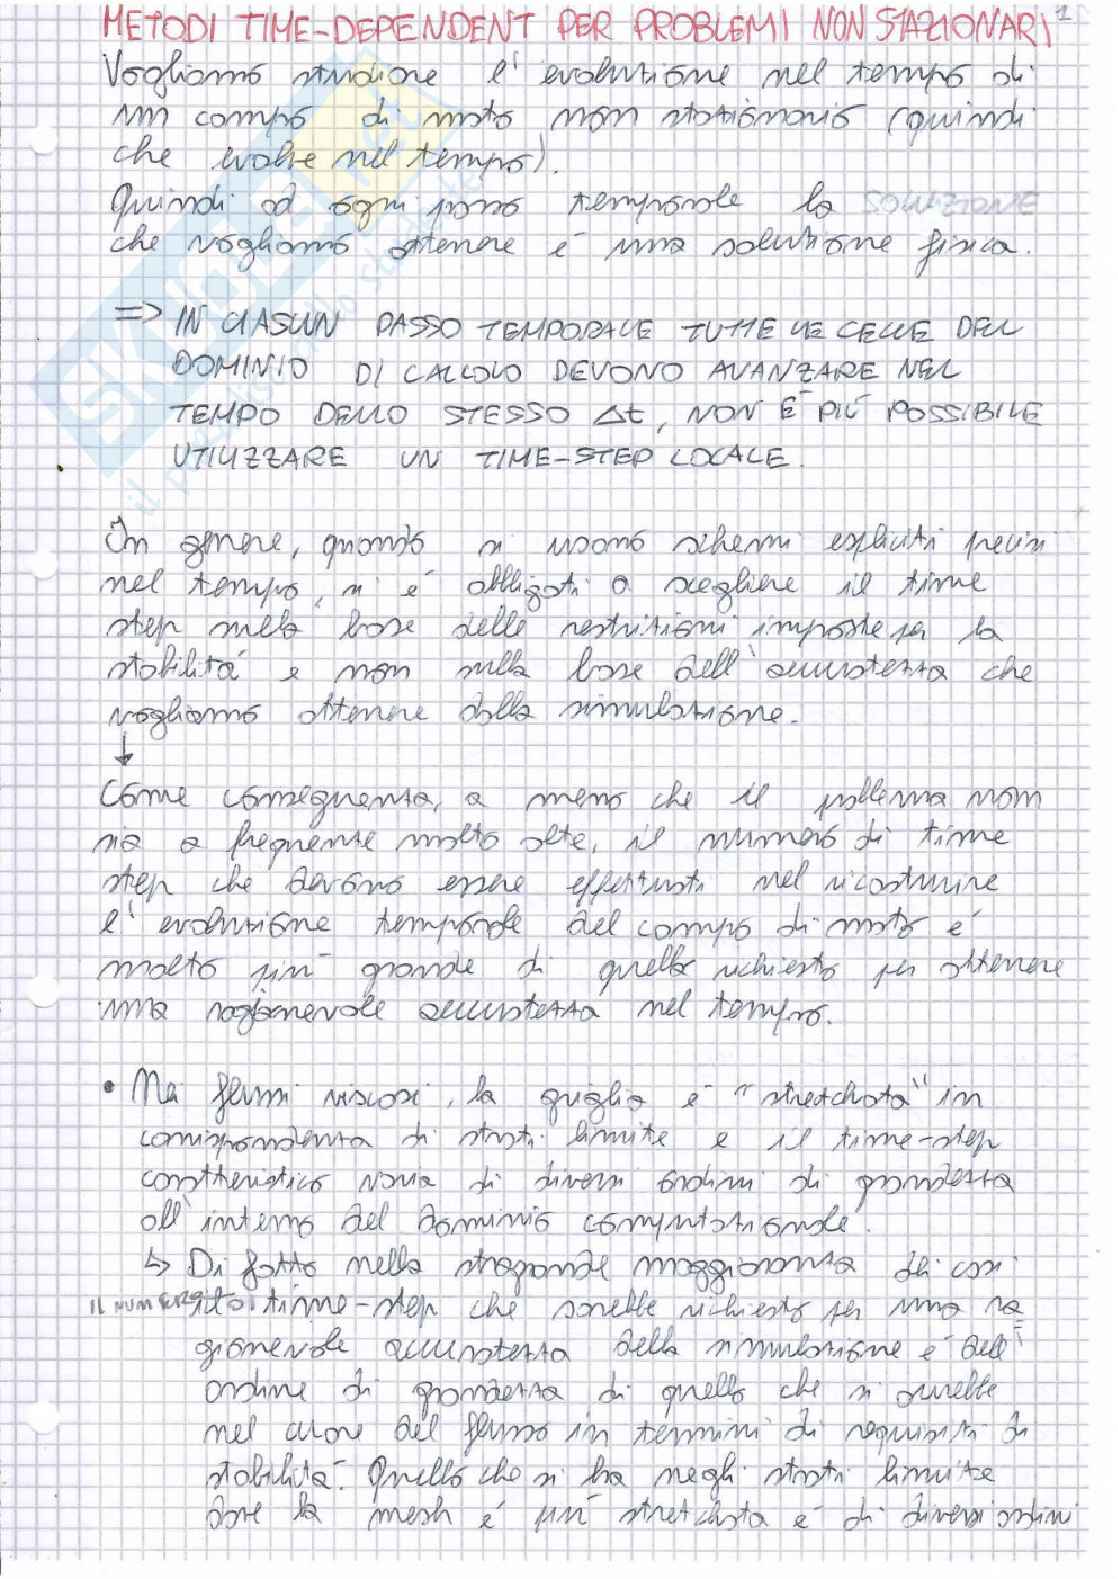 METODI TIME-DEPENDENT PER PROBLEMI NON STAZIONARI 1
Vogliamo studiare l'evoluzione nel tempo di
un campo di moto non stazionario (quindi
che evolve nel tempo).
Quindi ad ogni passo temporale la SOLUZIONE
che vogliamo ottenere è una soluzione fisica.
=> IN CIASCUN PASSO TEMPORALE TUTTE LE CELLE DEL
DOMINIO DI CALCOLO DEVONO AVANZARE NEL
TEMPO DELLO STESSO Δt, NON È PIÙ POSSIBILE
UTILIZZARE UN TIME-STEP LOCALE.
In genere, quando si usano schemi espliciti precisi
nel tempo, si è obbligati a scegliere il time
step sulla base delle restrizioni imposte per la
stabilità e non sulla base dell'accuratezza che
vogliamo ottenere dalla simulazione.
↓
Come conseguenza, a meno che il problema non
sia a frequenze molto alte, il numero di time
step che devono essere effettuati nel ricostruire
l'evoluzione temporale del campo di moto è
molto più grande di quello richiesto per ottenere
una ragionevole accuratezza nel tempo.
• Nei flussi viscosi, la griglia è "stretchata" in
corrispondenza di strati limite e il time-step
caratteristico varia di diversi ordini di grandezza
all'interno del dominio computazionale.
↳ Di fatto nella stragrande maggioranza dei casi
IL NUMERO di time-step che sarebbe richiesto per una ra
gionevole accuratezza della simulazione è dell'
ordine di grandezza di quello che si avrebbe
nel cuore del flusso in termini di requisiti di
stabilità. Quello che si ha negli strati limite
dove la mesh è più stretchata è di diversi ordini
SKUOLA.net
il paradiso dello studente